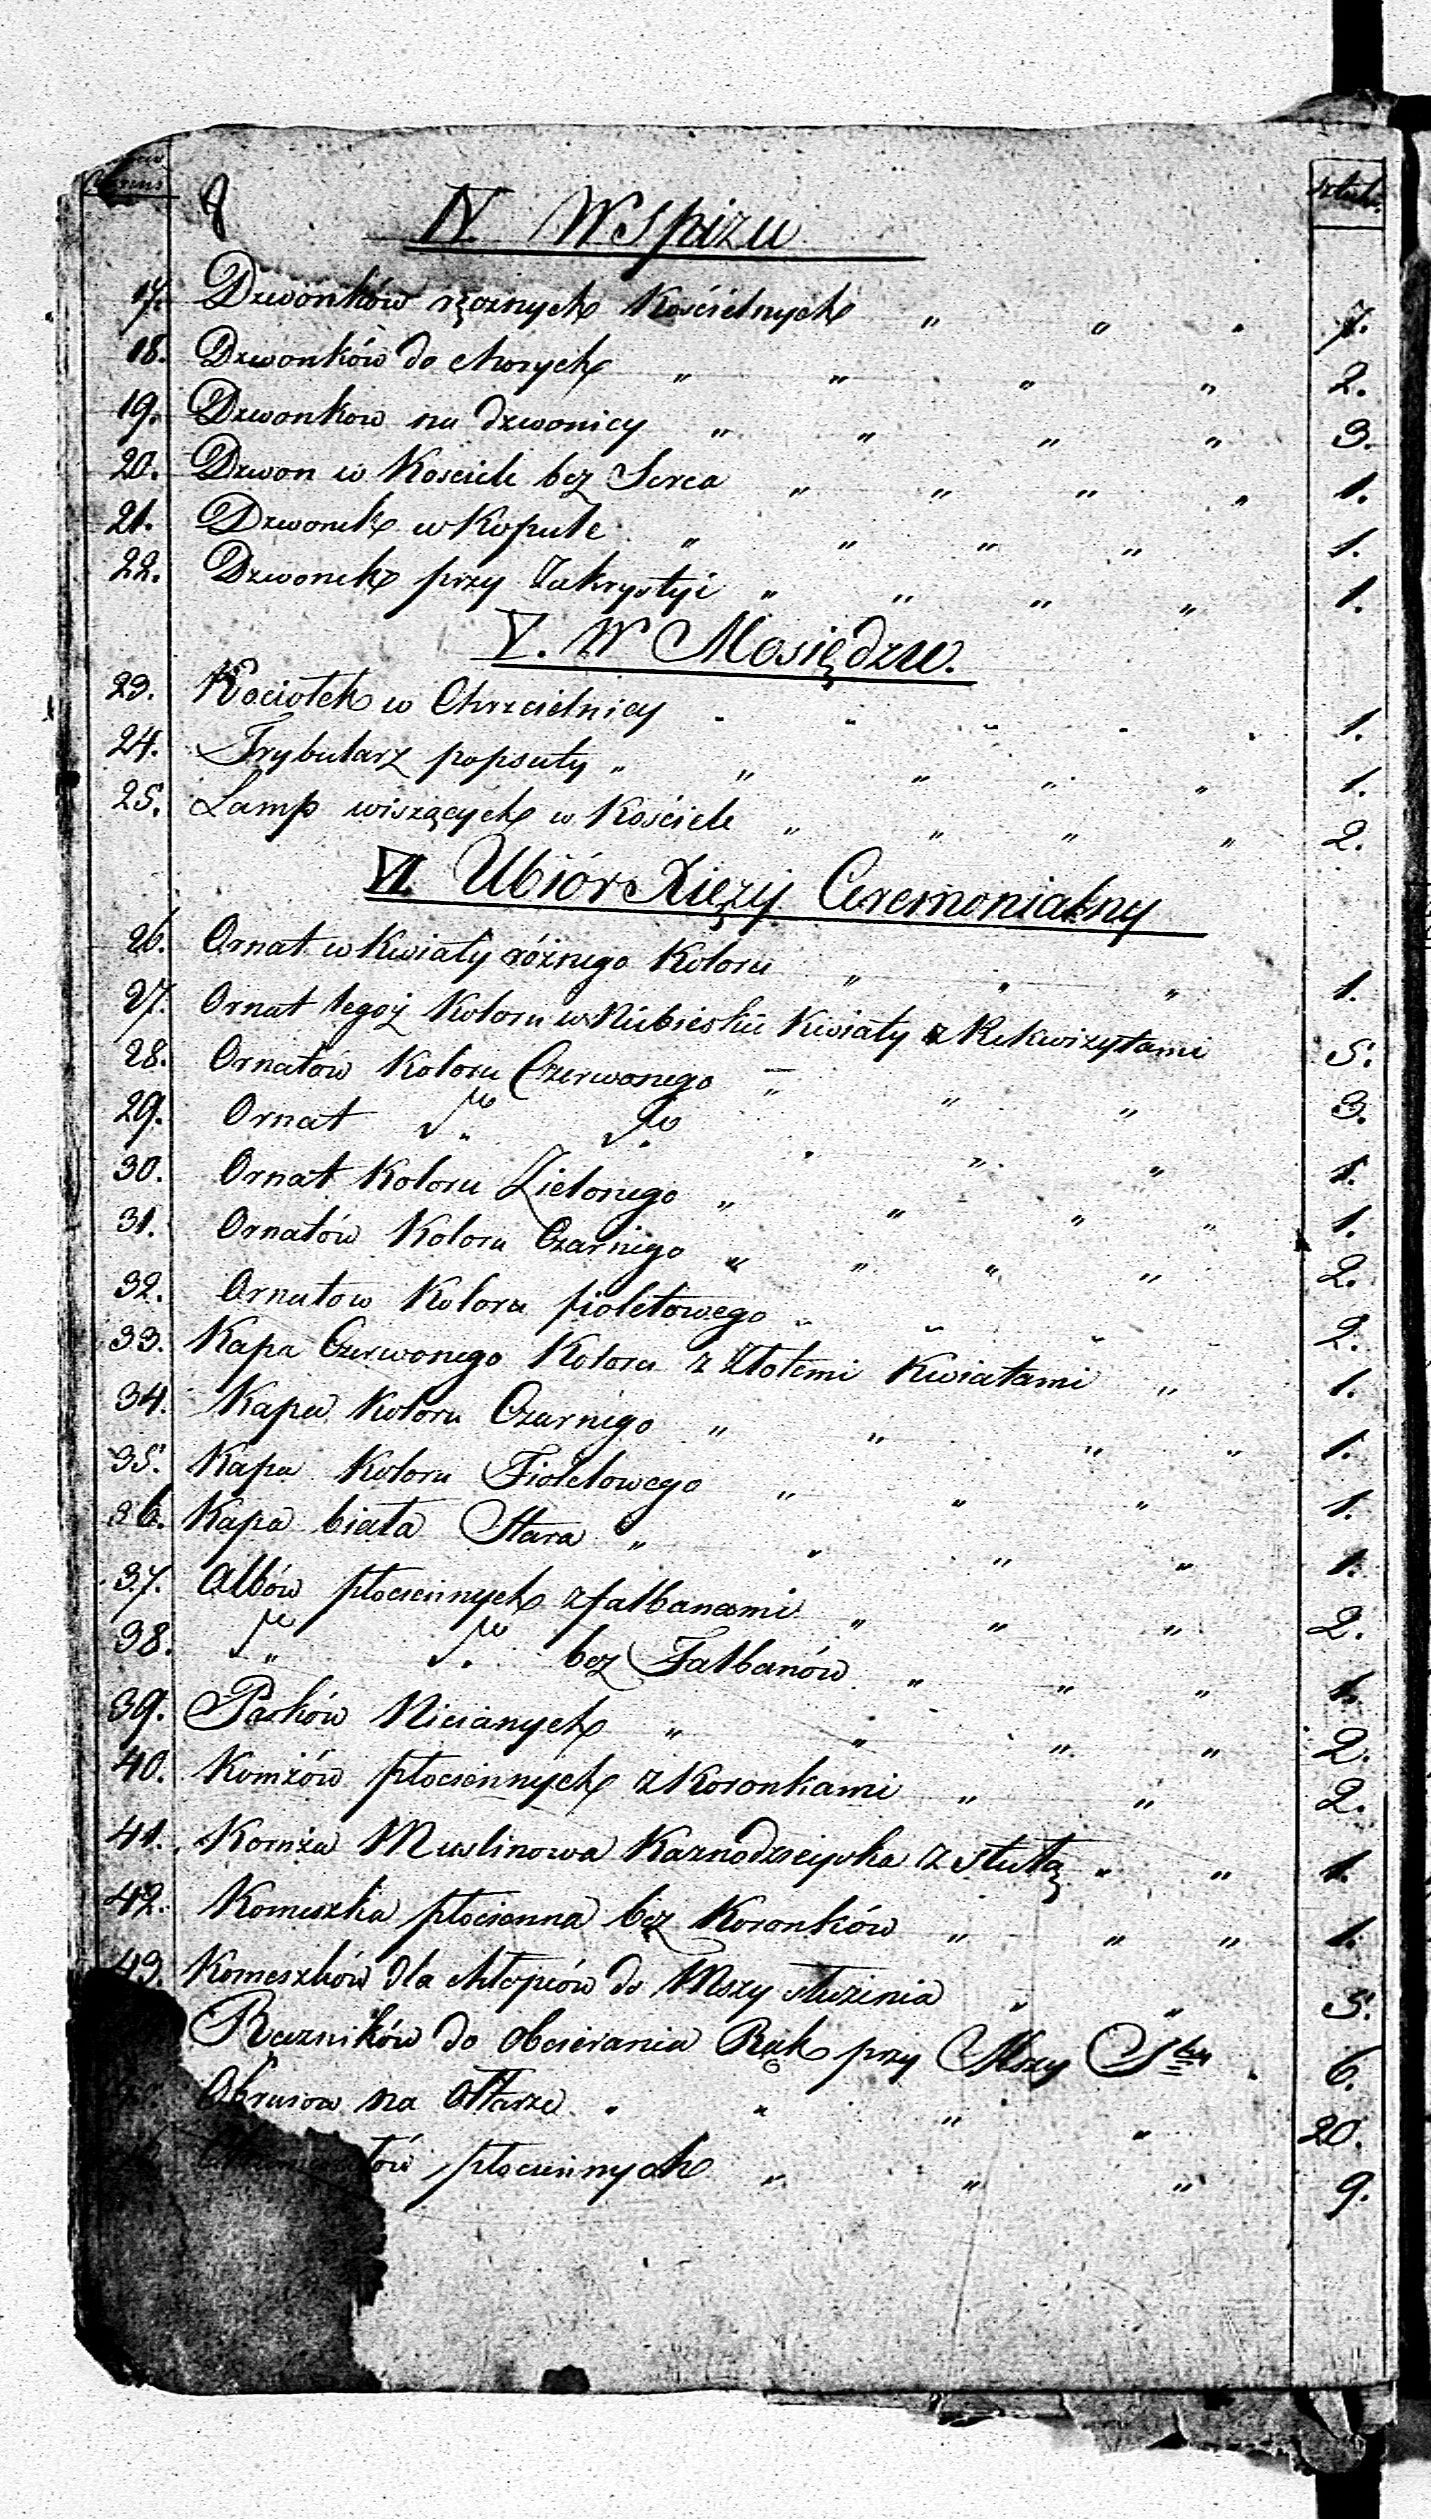 8
Sztuk.
IV. W Spiżu
17. Dzwonków ręcznych Kościelnych " " . 7.
18. Dzwonków do chorych " " " " 2.
19. Dzwonkow na dzwonicy " " " " 3.
20. Dzwon w Kosciele bez Serca " " " " 1.
21. Dzwonek w Kopule " " " " 1.
22. Dzwonek przy Zakrystyi " " " " 1.
V. W Mosiędzu.
23. Kociołek w Chrzcielnicy . " " . . 1.
24. Trybularz popsuty " " " " " 1.
25. Lamp wiszących w Kościele " " " " 2.
VI. Ubiór Xięży Ceremonialny
26. Ornat w Kwiaty różnego Koloru " " " 1.
27. Ornat tegoż Koloru w Niebieskie Kwiaty z Rekwizytami 5.
28. Ornatów Koloru Czerwonego " " " 3.
29. Ornat dto. dto. . " " 1.
30. Ornat Koloru Zielonego " " " " 1.
31. Ornatów Koloru Czarnego " " " " 2.
32. Ornatow Koloru fioletowego " " " 2.
33. Kapa Czerwonego Koloru z Złotemi Kwiatami " 1.
34. Kapa Koloru Czarnego " " " " 1.
35. Kapa Koloru Fioletowego " " " 1.
36. Kapa biała Stara " " " " 1.
37. Albów płóciennych z falbanami " " " 2.
38. dto. dto. bez Falbanów " " " 1.
39. Pasków Nicianych " " " " 2.
40. Komżów płóciennych z Koronkami " " 2.
41. Komża Muslinowa Kaznodzieyska z stułą " " 1.
42. Komeszka płocienna bez Koronków " " " 1.
43. Komeszków dla chłopców do Mszy służenia " " 5.
Ręczników do obcierania Rąk przy Mszy Stey . 6.
Obrusow na Ołtarze . " " " 20.
płóciennych " " " 9.